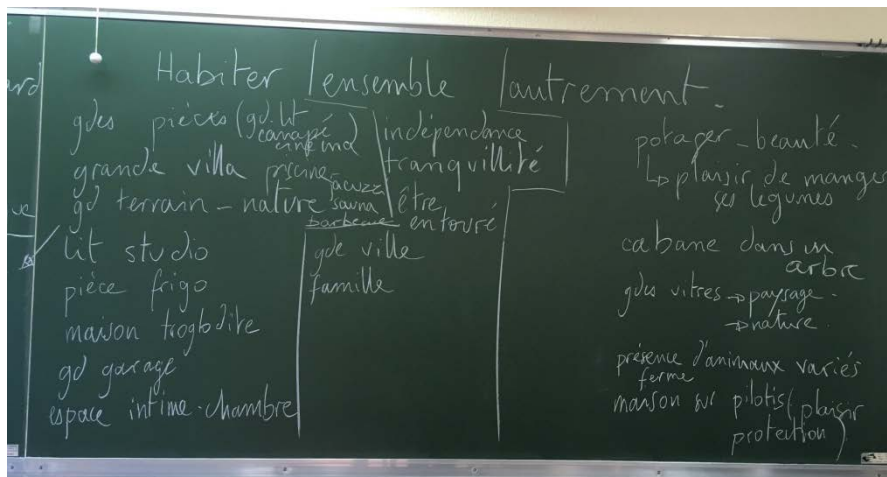 ard
Habiter ensemble autrement.
gdes pièces (gd lit
canapé
cinéma)
grande villa piscine
jacuzz
gd terrain - nature sauna
barbecue
lit studio
pièce frigo
maison troglodite
gd garage
espace intime - chambre
indépendance
tranquillité
être
entouré
gde ville
famille
potager - beauté.
↳ plaisir de manger
ses légumes
cabane dans un
arbre
gdes vitres → paysage.
→ nature.
présence d'animaux variés
ferme
maison sur pilotis (plaisir
protection)